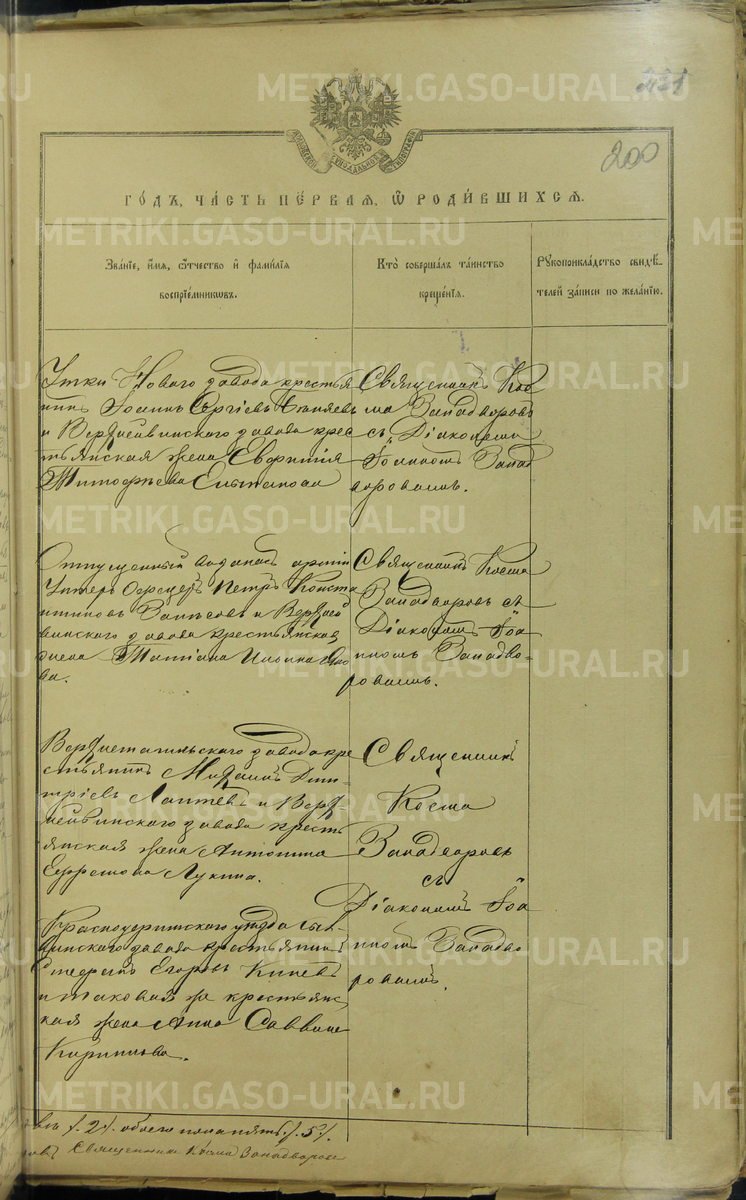 METRIKI.GASO-URAL.RU
231
200
ГОДЪ, ЧАСТЬ ПЕРВАЯ, Ѡ РОДИВШИХСЯ.
Званіе, имя, отчество и фамилія
воспріемниковъ.
Кто совершалъ таинство
крещенія.
Рукоприкладство свидѣ-
телей записи по желанію.
Утки Новаго завода крестья
нинъ Іоаннъ Сергіевъ
и Верхнейвинского завода крес
тьянская жена Евфимія
Тимофѣева
Священникъ Кос
ма Западворовъ
съ Діакономъ
Іоанномъ Запад
воровымъ.
Отпущенный въ запасъ арміи
Унтеръ Офицеръ Петръ Конста
нтиновъ и Верхней
винского завода крестьянская
жена Татіана Ильина
ва.
Священникъ Косма
Западворовъ съ
Діакономъ Іоа
нномъ Западво-
ровымъ.
Верхнетагильского завода кре
стьянинъ Михаилъ Дми-
тріевъ Лаптевъ и Верх-
нейвинского завода кресть
янская жена Антонина
Ефремова Лукина.
Священникъ
Косма
Западворовъ
съ
Діакономъ Іоа
нномъ Западво
ровымъ.
Красноуфимского уѣзда
винского завода крестьянинъ
Стефанъ Егоровъ
и таковая же крестьянс
кая жена Анна Саввина
2). обоего пола пять (5).
Священникъ Косма Западворовъ